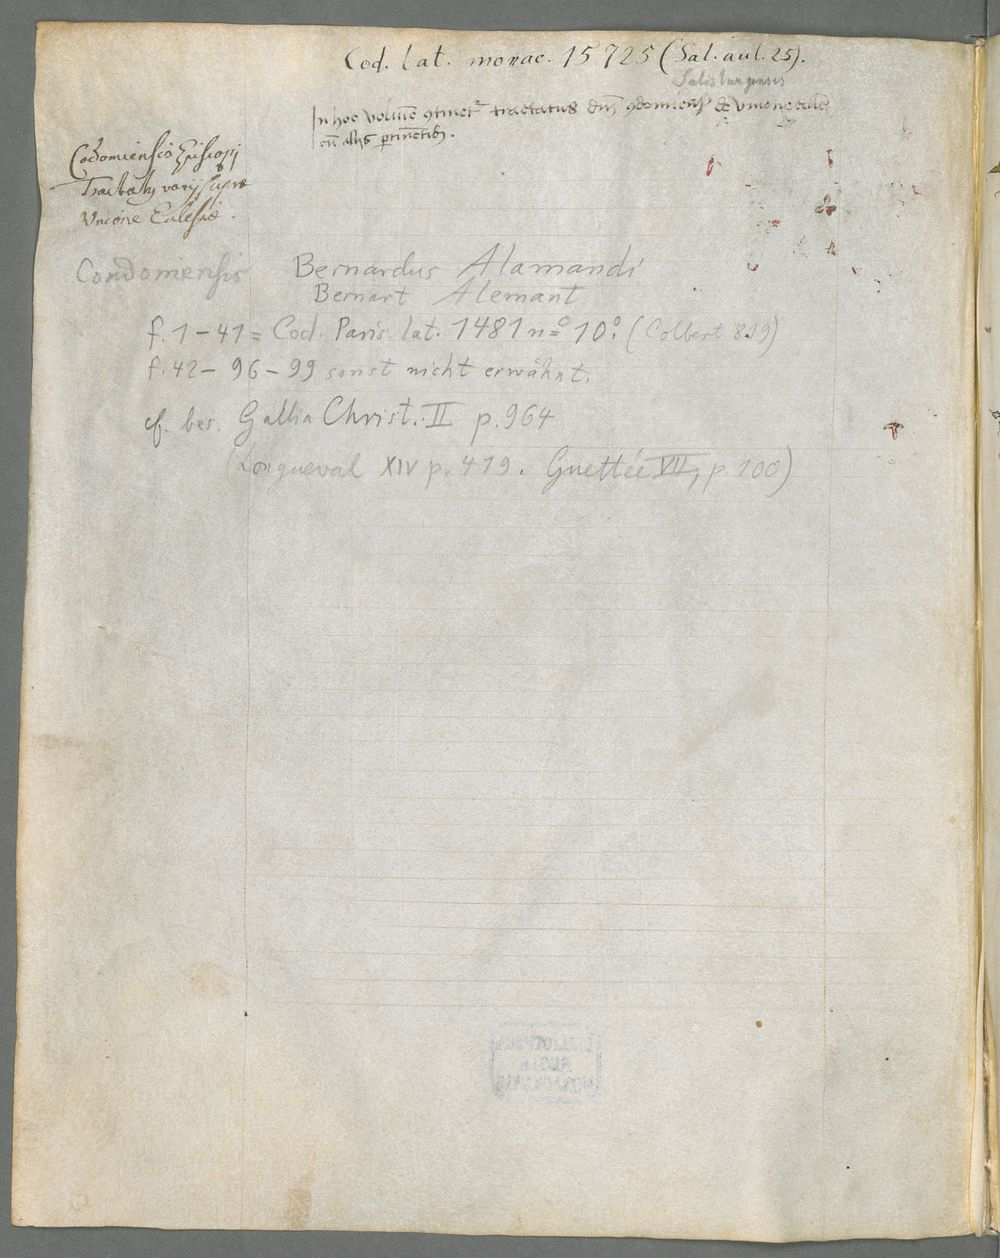 Cod. lat. monac. 15725 (Sal. aul. 25).
Salisburgensis
In hoc volumine 9tinet~ tractatus dni 9domiens de vnione ecclie
cum aliis ptinetib.
Codomiensis Episcopi
Tractatus varij supra
Vnione Ecclesiæ.
Condomiensis Bernardus Alamandi
Bernart Alemant
f. 1–41 = Cod. Paris. lat. 1481 n=° 10°. (Colbert 819)
f. 42 – 96 – 99 sonst nicht erwähnt.
cf. bes. Gallia Christ. II p. 964
(Longueval XIV p. 419. Guettée VII, p 100)
BIBLIOTHECA
REGIA
MONACENSIS